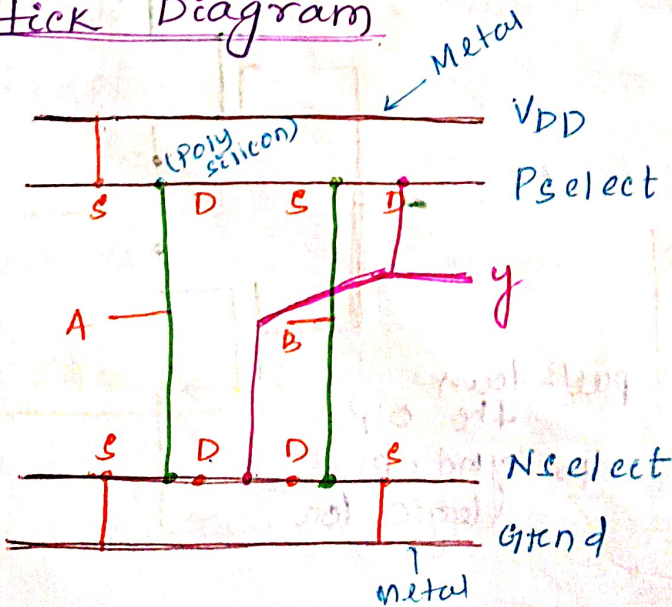 tick Diagram
Metal
VDD
(Poly silicon)
Pselect
S D S D
A
B
y
S D D S
Nselect
Grnd
Metal